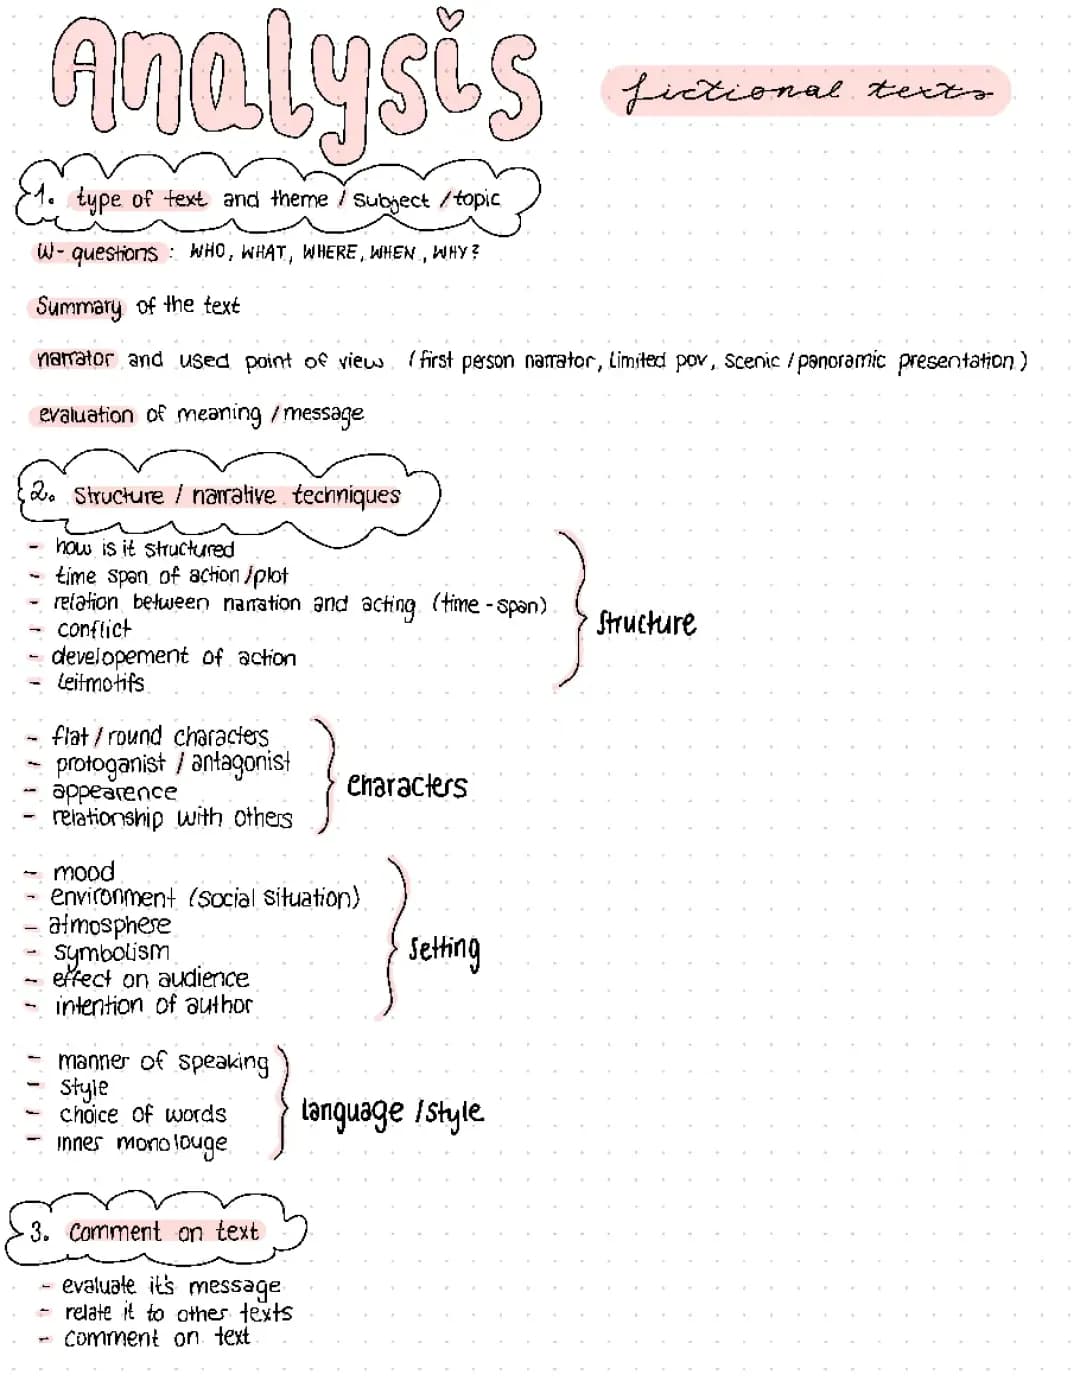 Analysis
fictional texts
1. type of text and theme / subject / topic
W-questions: WHO, WHAT, WHERE, WHEN, WHY?
Summary of the text
narrator and used point of view (first person narrator, limited pov, scenic / panoramic presentation)
evaluation of meaning / message
2. Structure / narrative techniques
- how is it structured
- time span of action / plot
- relation between narration and acting (time-span)
- conflict
- developement of action
- leitmotifs
Structure
- flat / round characters
- protoganist / antagonist
- appearence
- relationship with others
characters
- mood
- environment (social situation)
- atmosphere
- symbolism
- effect on audience
- intention of author
Setting
- manner of speaking
- style
- choice of words
- inner monolouge
language / style
3. Comment on text
- evaluate it's message
- relate it to other texts
- comment on text